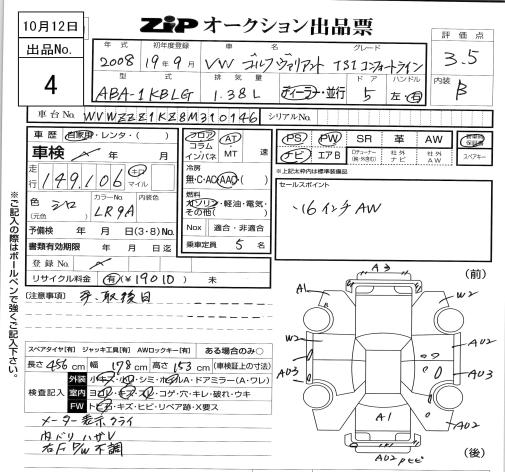 10月12日
ZIP オークション出品票
評価点
3.5
出品No.
4
年式 初年度登録 車名 グレード
2008 19年9月 VW ゴルフ ヴァリアント TSI コンフォートライン
型式 排気量 ドア ハンドル
ABA-1KBLG 1.38L ディーラー・並行 5 左・右
内装
B
車台No. WVWZZZ1KZ8M310146 シリアルNo.
車歴 自家用・レンタ・( )
フロア コラム インパネ
AT・MT 速
PS PW SR 革 AW
ナビ エアB
社外ナビ 社外AW
スペアキー
※上記太枠内は標準装備品
車検 年 月
走行 149,106 キロ マイル
冷房
無・C・AC・AAC・( )
燃料
ガソリン・軽油・電気・その他( )
セールスポイント
・16インチAW
色(元色) シロ カラーNo. LR9A 内装色
Nox 適合・非適合
予備検 年 月 日(3・8)No.
書類有効期限 年 月 日
乗車定員 5 名
登録No.
リサイクル料金 有(¥19010) 未
[注意事項]
※ご記入の際はボールペンで強くご記入下さい。
スペアタイヤ[有] ジャッキ工具[有] AWロックキー[有] ある場合のみ○
長さ 456 cm 幅 178 cm 高さ 153 cm (車検証上の寸法)
検査記入
外装 小キズ・小凹・シミ・ホイルA・ドアミラー(A・ワレ)
室内 ヨゴレ・キズ・スレ・コゲ・穴・キレ・破れ・ウキ
FW トビ石・キズ・ヒビ・リペア跡・X要ス
メーター表示クライ
内バリ ハガV
右F P/W 不調
(前)
A3
A1
W2
W2
AU2
AU3
AU3
A1
AU2
(後)